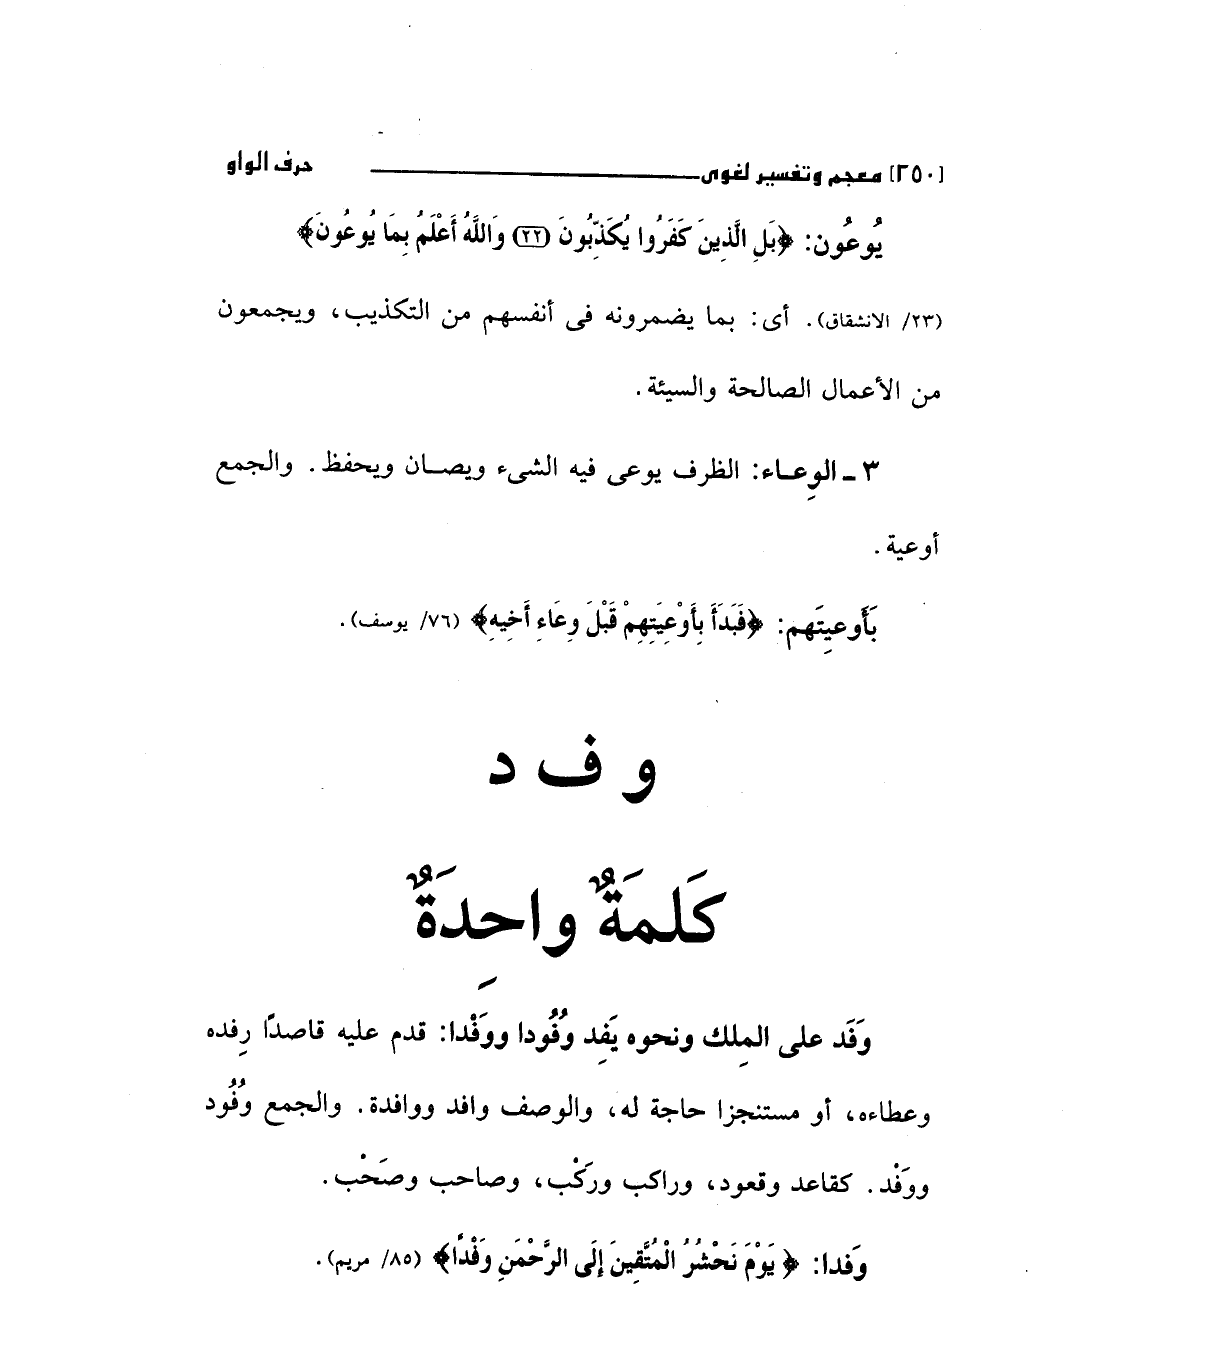 [٢٥٠] معجم وتفسير لغوى ـــــــــــ حرف الواو
يُوعُون: ﴿بَلِ الَّذِينَ كَفَرُوا يُكَذِّبُونَ (٢٢) وَاللَّهُ أَعْلَمُ بِمَا يُوعُونَ﴾
(٢٣/ الانشقاق). أى: بما يضمرونه فى أنفسهم من التكذيب، ويجمعون
من الأعمال الصالحة والسيئة.
٣ ـ الوِعـاء: الظرف يوعى فيه الشىء ويصـان ويحفظ. والجمع
أوعية.
بَأَوعيتَهم: ﴿فَبَدَأَ بِأَوْعِيَتِهِمْ قَبْلَ وِعَاءِ أَخِيهِ﴾ (٧٦/ يوسف).
و ف د
كَلمَةٌ واحِدَةٌ
وَفَد على المِلك ونحوه يَفِد وُفُودا ووَفْدا: قدم عليه قاصدًا رِفده
وعطاءه، أو مستنجزا حاجة له، والوصف وافد ووافدة. والجمع وُفُود
ووَفْد. كقاعد وقعود، وراكب وركَْب، وصاحب وصَحْب.
وَفدا: ﴿يَوْمَ نَحْشُرُ الْمُتَّقِينَ إِلَى الرَّحْمَنِ وَفْدًا﴾ (٨٥/ مريم).